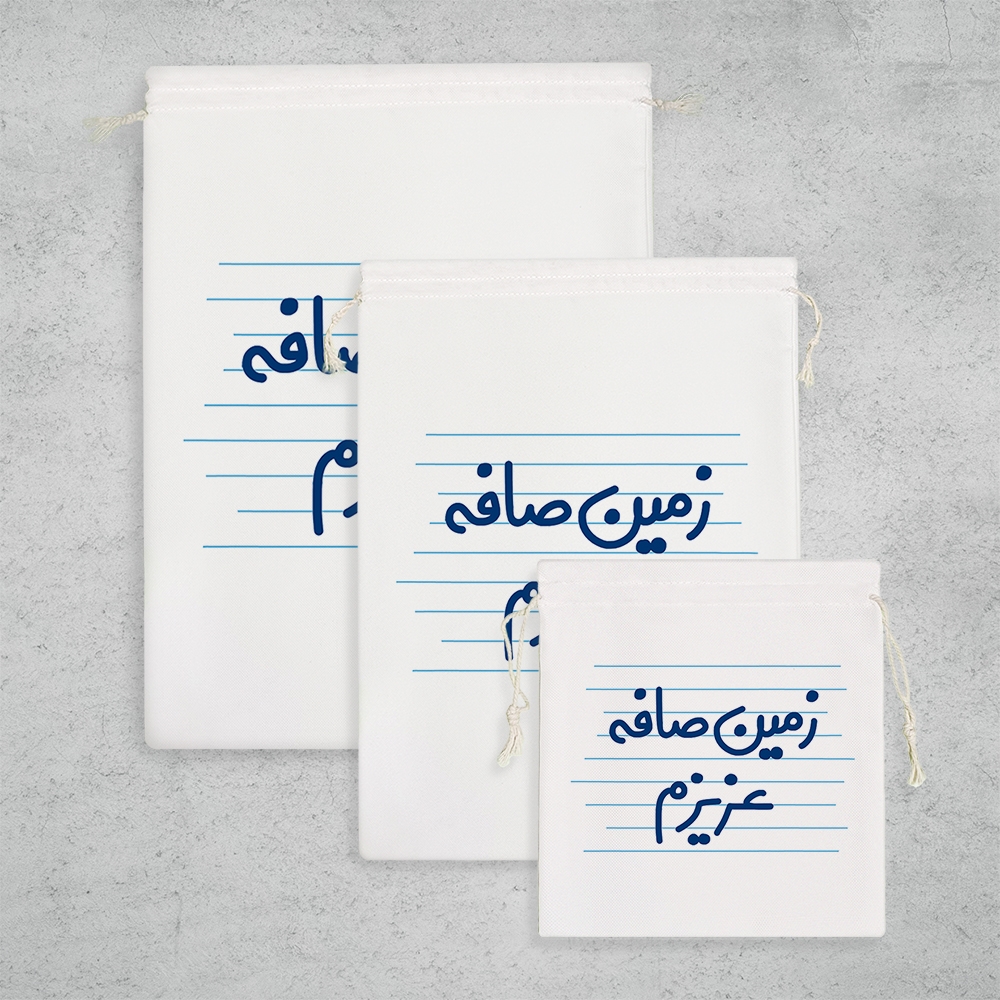 صافه
م
زمین صافه
م
زمین صافه
عزیزم